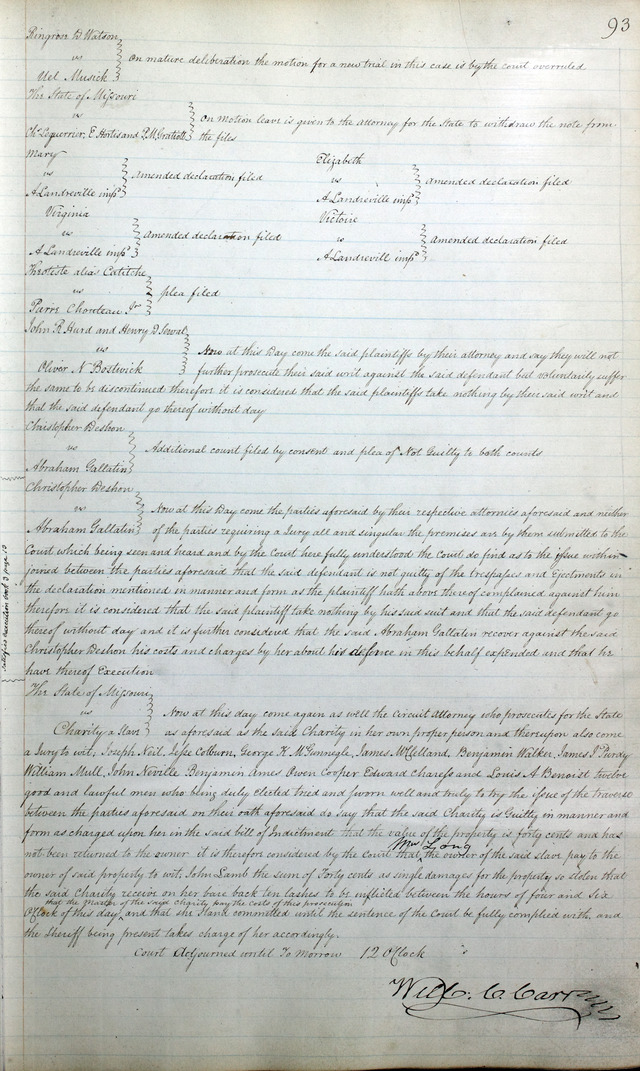 93
Ringrose D Watson
vs
On mature deliberation the motion for a new trial in this case is by the court overruled
Uel Musick
The State of Missouri
vs
On motion leave is given to the attorney for the State to withdraw the note from
Chs Lequerrier, E Hortis and P. M. Gratiott
the files
Mary
vs
Amended declaration filed
A Landreville impd
Elizabeth
vs
Amended declaration filed
A Landreville impd
Virginia
vs
Amended declaration filed
A Landreville impd
Victoire
vs
Amended declaration filed
A Landrevill impd
Theoteste alias Catiche
vs
plea filed
Pierre Chouteau Jr
John R Hurd and Henry D Sewal
vs
Now at this Day come the said plaintiffs by their attorney and say they will not
Oliver N Bostwick
further prosecute their said writ against the said defendant but voluntarily suffer
the same to be discontinued therefore it is considered that the said plaintiffs take nothing by their said writ and
that the said defendant go thereof without day
Christopher Deshon
vs
Additional count filed by consent and plea of Not Guilty to both counts
Abraham Gallatin
Christopher Deshon
vs
Now at this Day come the parties aforesaid by their respective attornies aforesaid and neither
Abraham Gallatin
of the parties requiring a Jury all and singular the premises are by them submitted to the
Court which being seen and heard and by the Court here fully understood the Court do find as to the issue within
joined between the parties aforesaid that the said defendant is not guilty of the trespasses and Ejectments in
the declaration mentioned in manner and form as the plaintiff hath above thereof complained against him
therefore it is considered that the said plaintiff take nothing by his said suit and that the said defendant go
thereof without day and it is further considered that the said Abraham Gallatin recover against the said
Christopher Deshon his costs and charges by her about his defence in this behalf expended and that he
have thereof Execution
Satisfied execution book 3 page 13
The State of Missouri
vs
Now at this day come again as well the Circuit Attorney who prosecutes for the State
Charity a Slave
as aforesaid as the said Charity in her own proper person and thereupon also come
a Jury to wit, Joseph Neil, Jesse Colburn, George K. McGunnigle, James McClelland, Benjamin Walker, James J Purdy
William Mull, John Neville Benjamin Ames Owen Cooper Edward Charess and Louis A. Benoist twelve
good and lawful men who being duly elected tried and sworn well and truly to try the issue of the traverse
between the parties aforesaid on their oath aforesaid do say that the said Charity is Guilty in manner and
form as charged upon her in the said bill of Indictment that the value of the property is forty cents and has
Wm Long
not been returned to the owner it is therefore considered by the Court that the owner of the said slave pay to the
owner of said property to wit, John Lamb the sum of Forty cents as single damages for the property so stolen that
the said Charity receive on her bare back ten lashes to be inflicted between the hours of four and Six
that the master of the said Charity pay the costs of this prosecution
O'Clock of this day, and that she stand committed until the sentence of the Court be fully complied with, and
the Sheriff being present takes charge of her accordingly.
Court Adjourned until To Morrow 12 OClock
Will. C. Carr